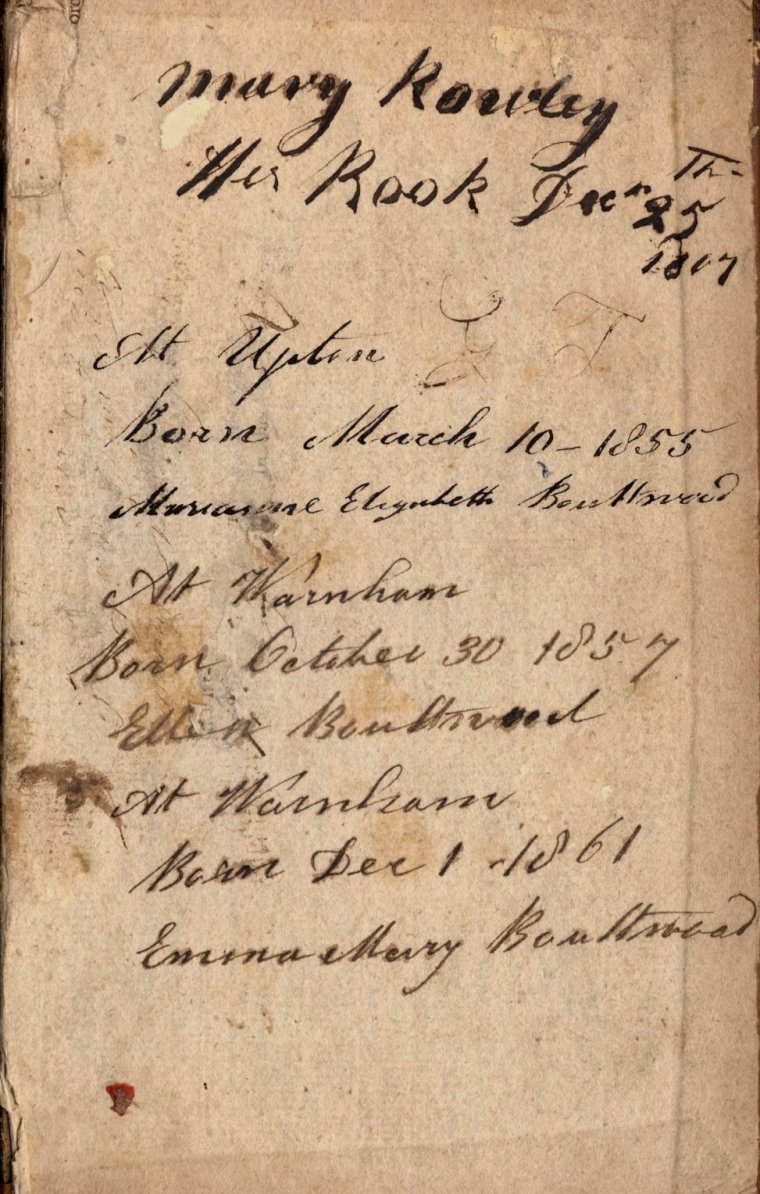 Mary Rowley
Her Book Decn 25 Th-
1807
At Upton
Born March 10 - 1855
Marianne Elizabeth Boultwood
At Warnham
Born October 30 1857
Ellen Boultwood
At Warnham
Born Dec 1 - 1861
Emma Mary Boultwood